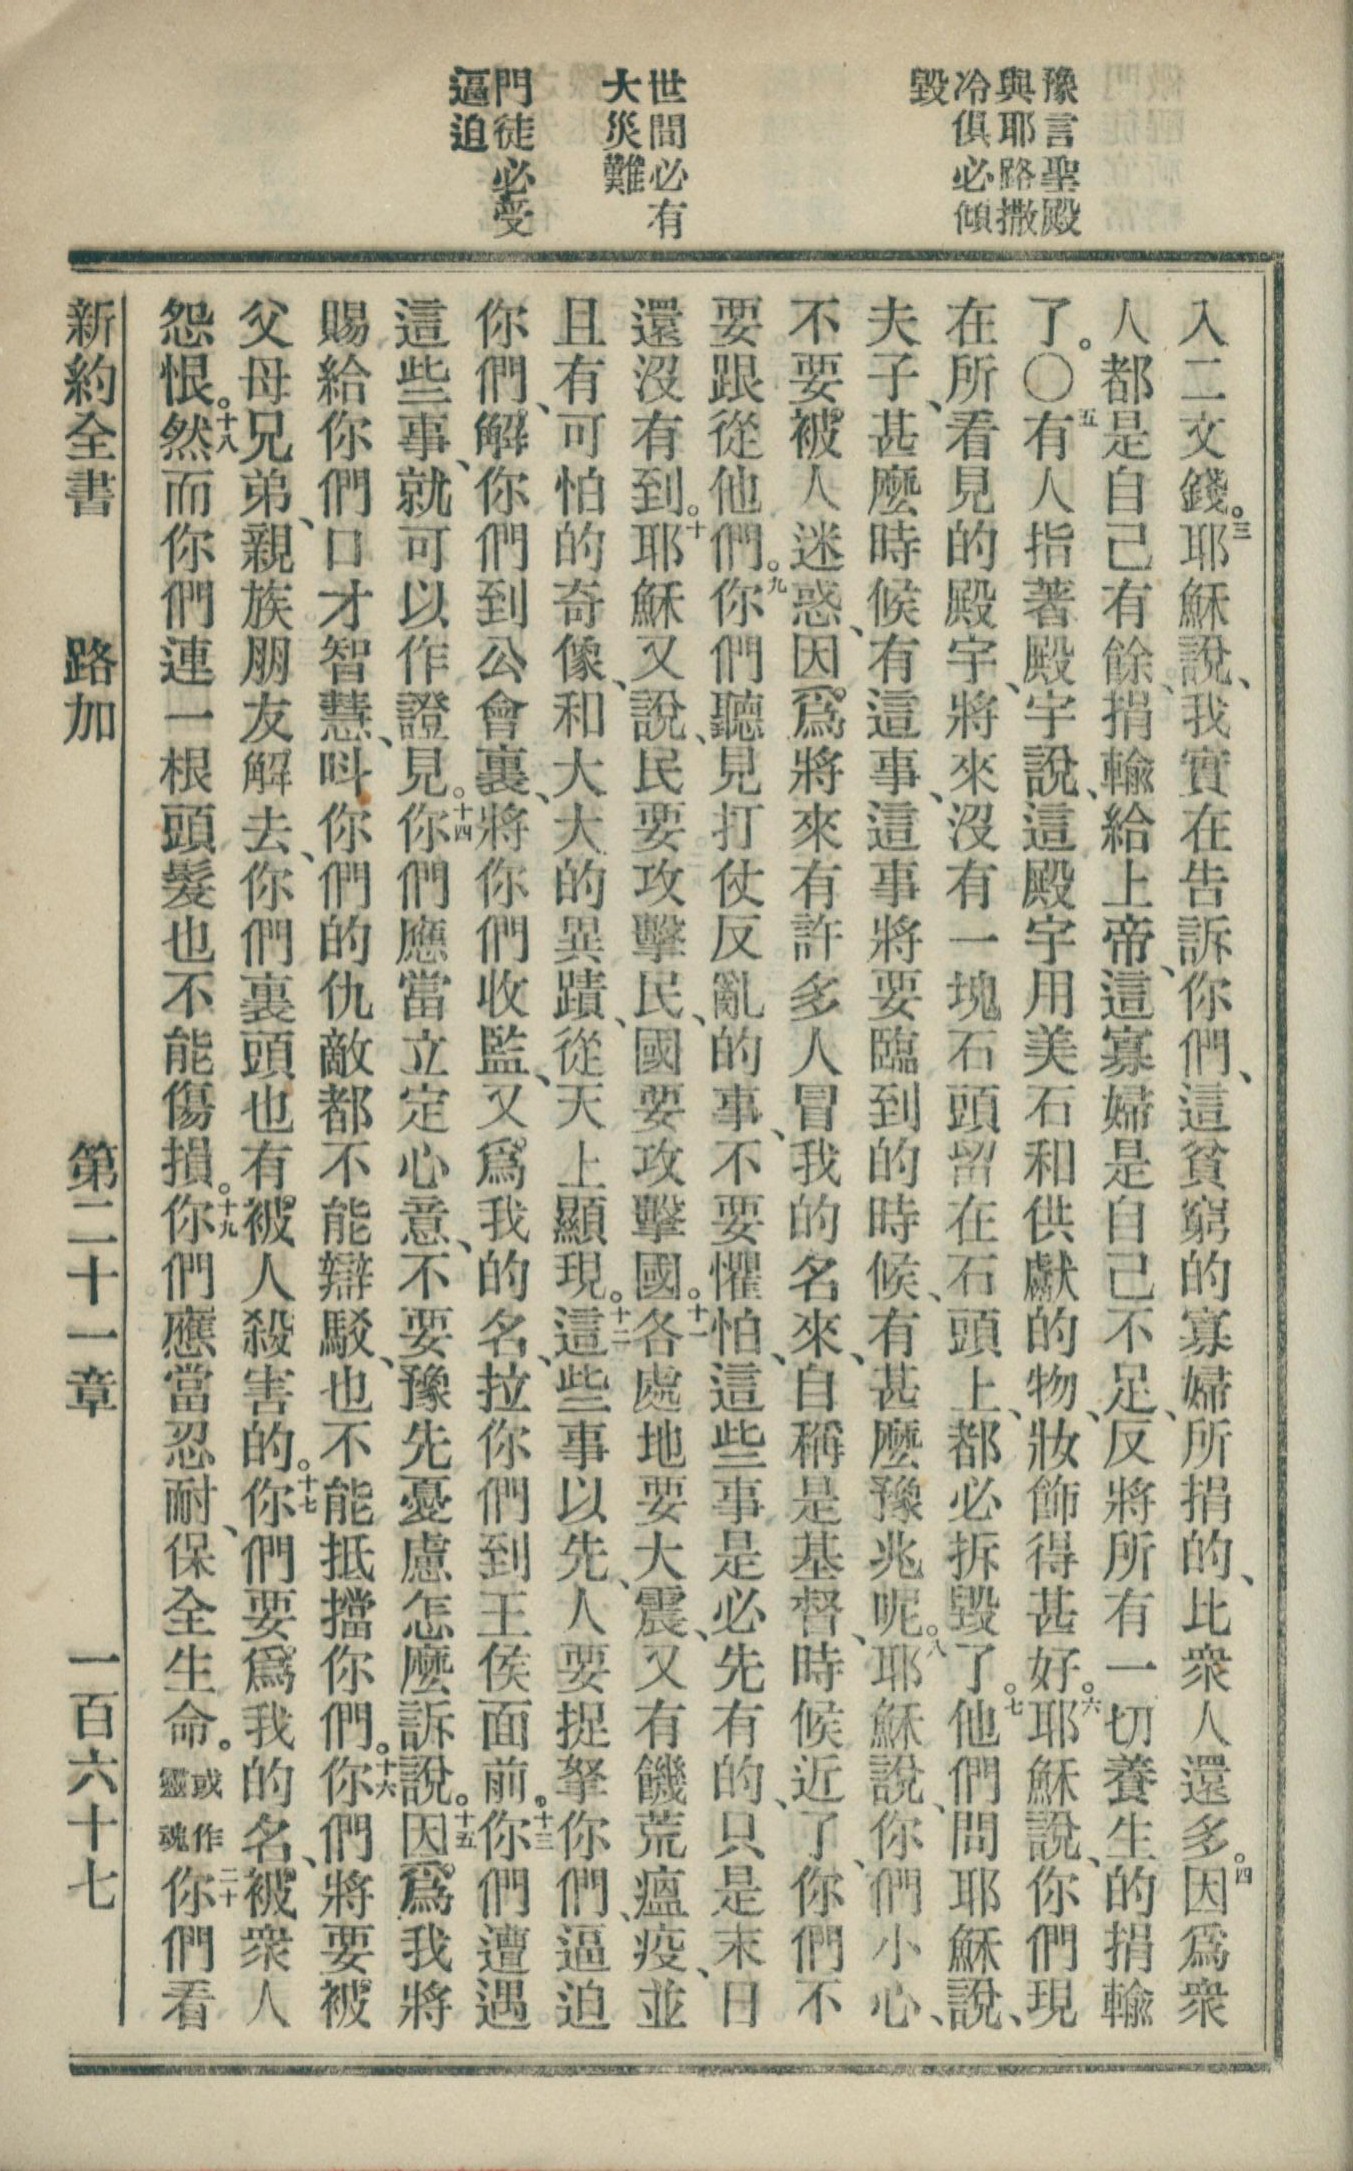 豫言聖殿
與耶路撒
冷俱必傾
毀
世間必有
大災難
門徒必受
逼迫
入二文錢。三耶穌說、我實在告訴你們、這貧窮的寡婦所捐的、比衆人還多。四因爲衆
人都是自己有餘、捐輸給上帝、這寡婦是自己不足、反將所有一切養生的捐輸
了。〇五有人指著殿宇說、這殿宇用美石和供獻的物、妝飾得甚好。六耶穌說、你們現
在所看見的殿宇、將來沒有一塊石頭留在石頭上、都必拆毀了。七他們問耶穌說、
夫子、甚麼時候有這事、這事將要臨到的時候、有甚麼豫兆呢。八耶穌說、你們小心、
不要被人迷惑、因爲將來有許多人冒我的名來、自稱是基督、時候近了、你們不
要跟從他們。九你們聽見打仗反亂的事、不要懼怕、這些事是必先有的、只是末日
還沒有到。十耶穌又說、民要攻擊民、國要攻擊國。十一各處地要大震、又有饑荒瘟疫、並
且有可怕的奇像、和大大的異蹟、從天上顯現。十二這些事以先、人要捉拏你們、逼迫
你們、解你們到公會裏、將你們收監、又爲我的名、拉你們到王侯面前。十三你們遭遇
這些事、就可以作證見。十四你們應當立定心意、不要豫先憂慮怎麼訴說。十五因爲我將
賜給你們口才智慧、呌你們的仇敵都不能辯駁、也不能抵擋你們。十六你們將要被
父母兄弟、親族朋友解去、你們裏頭也有被人殺害的。十七你們要爲我的名、被衆人
怨恨。十八然而你們連一根頭髮也不能傷損。十九你們應當忍耐、保全生命。或作靈魂二十你們看
新約全書 路加 第二十一章 一百六十七